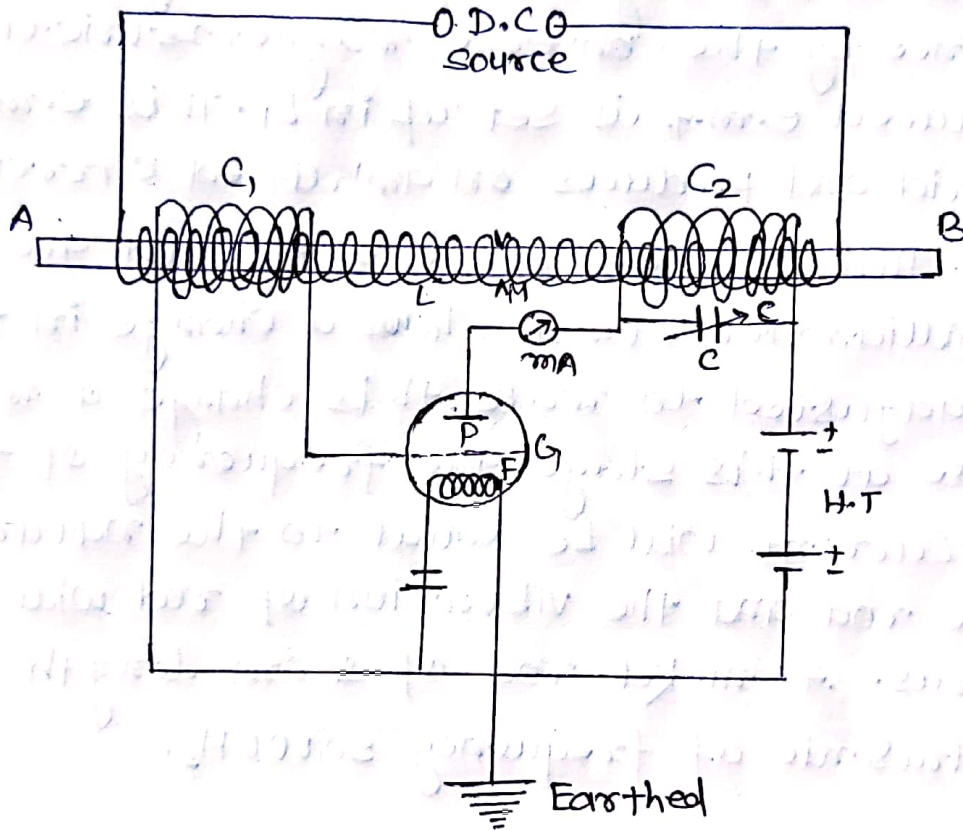 O D.C O
Source
C1
C2
A
B
L
AM
C
mA
C
P
G
F
+
H.T
+
-
Earthed